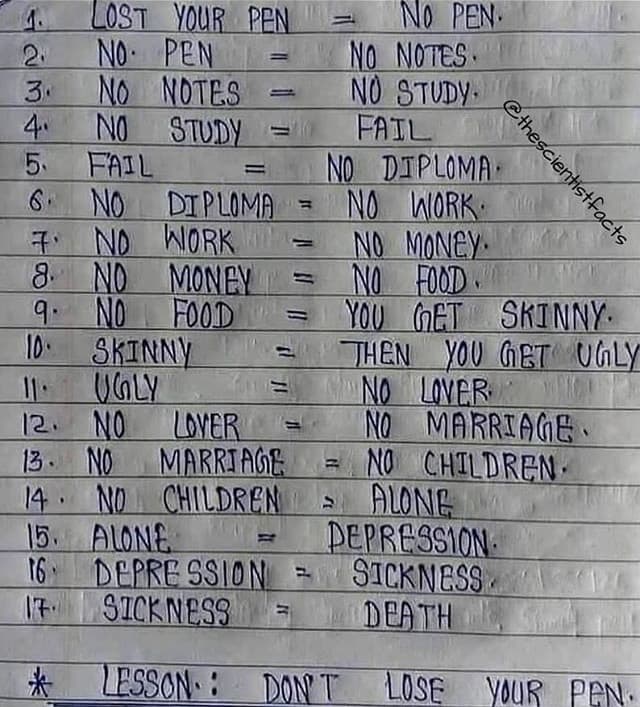 1. LOST YOUR PEN = NO PEN.
2. NO. PEN = NO NOTES.
3. NO NOTES = NO STUDY.
4. NO STUDY = FAIL
5. FAIL = NO DIPLOMA.
6. NO DIPLOMA = NO WORK.
7. NO WORK = NO MONEY.
8. NO MONEY = NO FOOD.
9. NO FOOD = YOU GET SKINNY.
10. SKINNY = THEN YOU GET UGLY
11. UGLY = NO LOVER.
12. NO LOVER = NO MARRIAGE.
13. NO MARRIAGE = NO CHILDREN.
14. NO CHILDREN = ALONE
15. ALONE = DEPRESSION.
16. DEPRESSION = SICKNESS.
17. SICKNESS = DEATH
* LESSON.: DON'T LOSE YOUR PEN.
@thescientistfacts